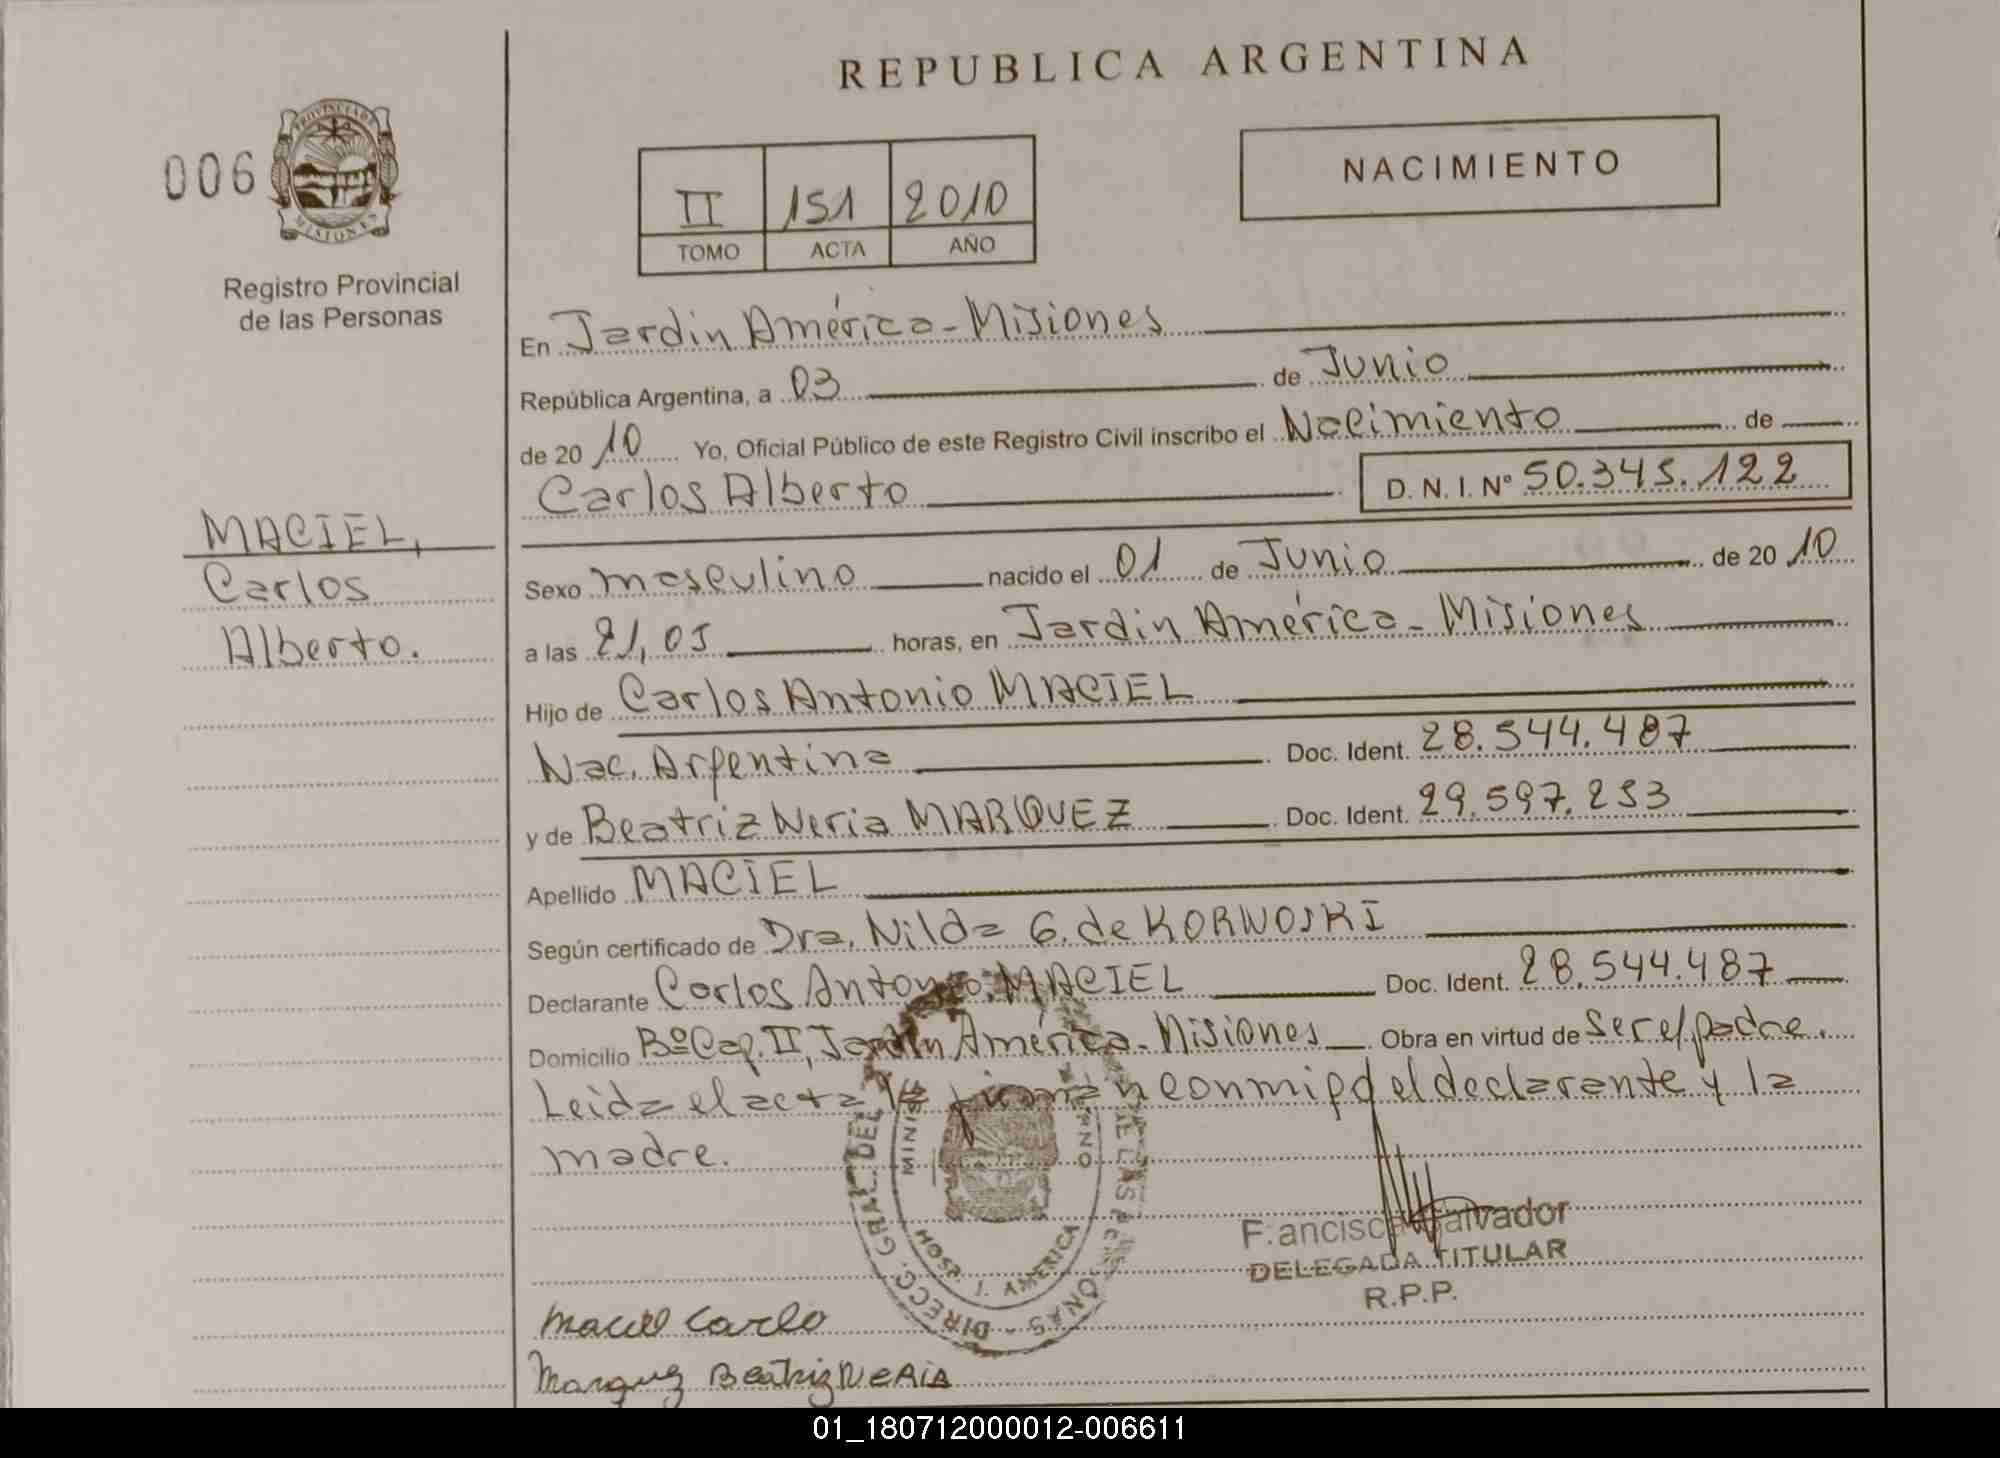 REPUBLICA ARGENTINA
006
PROVINCIA DE
MISIONES
Registro Provincial
de las Personas
NACIMIENTO
II 151 2010
TOMO ACTA AÑO
MACIEL,
Carlos
Alberto.
En Jardin América-Misiones
República Argentina, a 03 de Junio
de 20 10 Yo, Oficial Público de este Registro Civil inscribo el Nacimiento de
Carlos Alberto D. N. I. Nº 50.345.122
Sexo masculino nacido el 01 de Junio de 20 10
a las 21,05 horas, en Jardin América-Misiones
Hijo de Carlos Antonio MACIEL
Nac. Argentina Doc. Ident. 28.544.487
y de Beatriz Neria MARQUEZ Doc. Ident. 29.597.253
Apellido MACIEL
Según certificado de Dra. Nilda G. de KORNOSKI
Declarante Carlos Antonio MACIEL Doc. Ident. 28.544.487
Domicilio BºCap. II, Jardin América-Misiones Obra en virtud de ser el padre.
Leida el acta la firman conmigo el declarante y la
madre.
DIRECC. GRAL. DEL DE LAS
HOSP. J. AMERICA
Salvador
DELEGADA TITULAR
R.P.P.
Maciel Carlo
Marquez Beatriz Neria
01_180712000012-006611